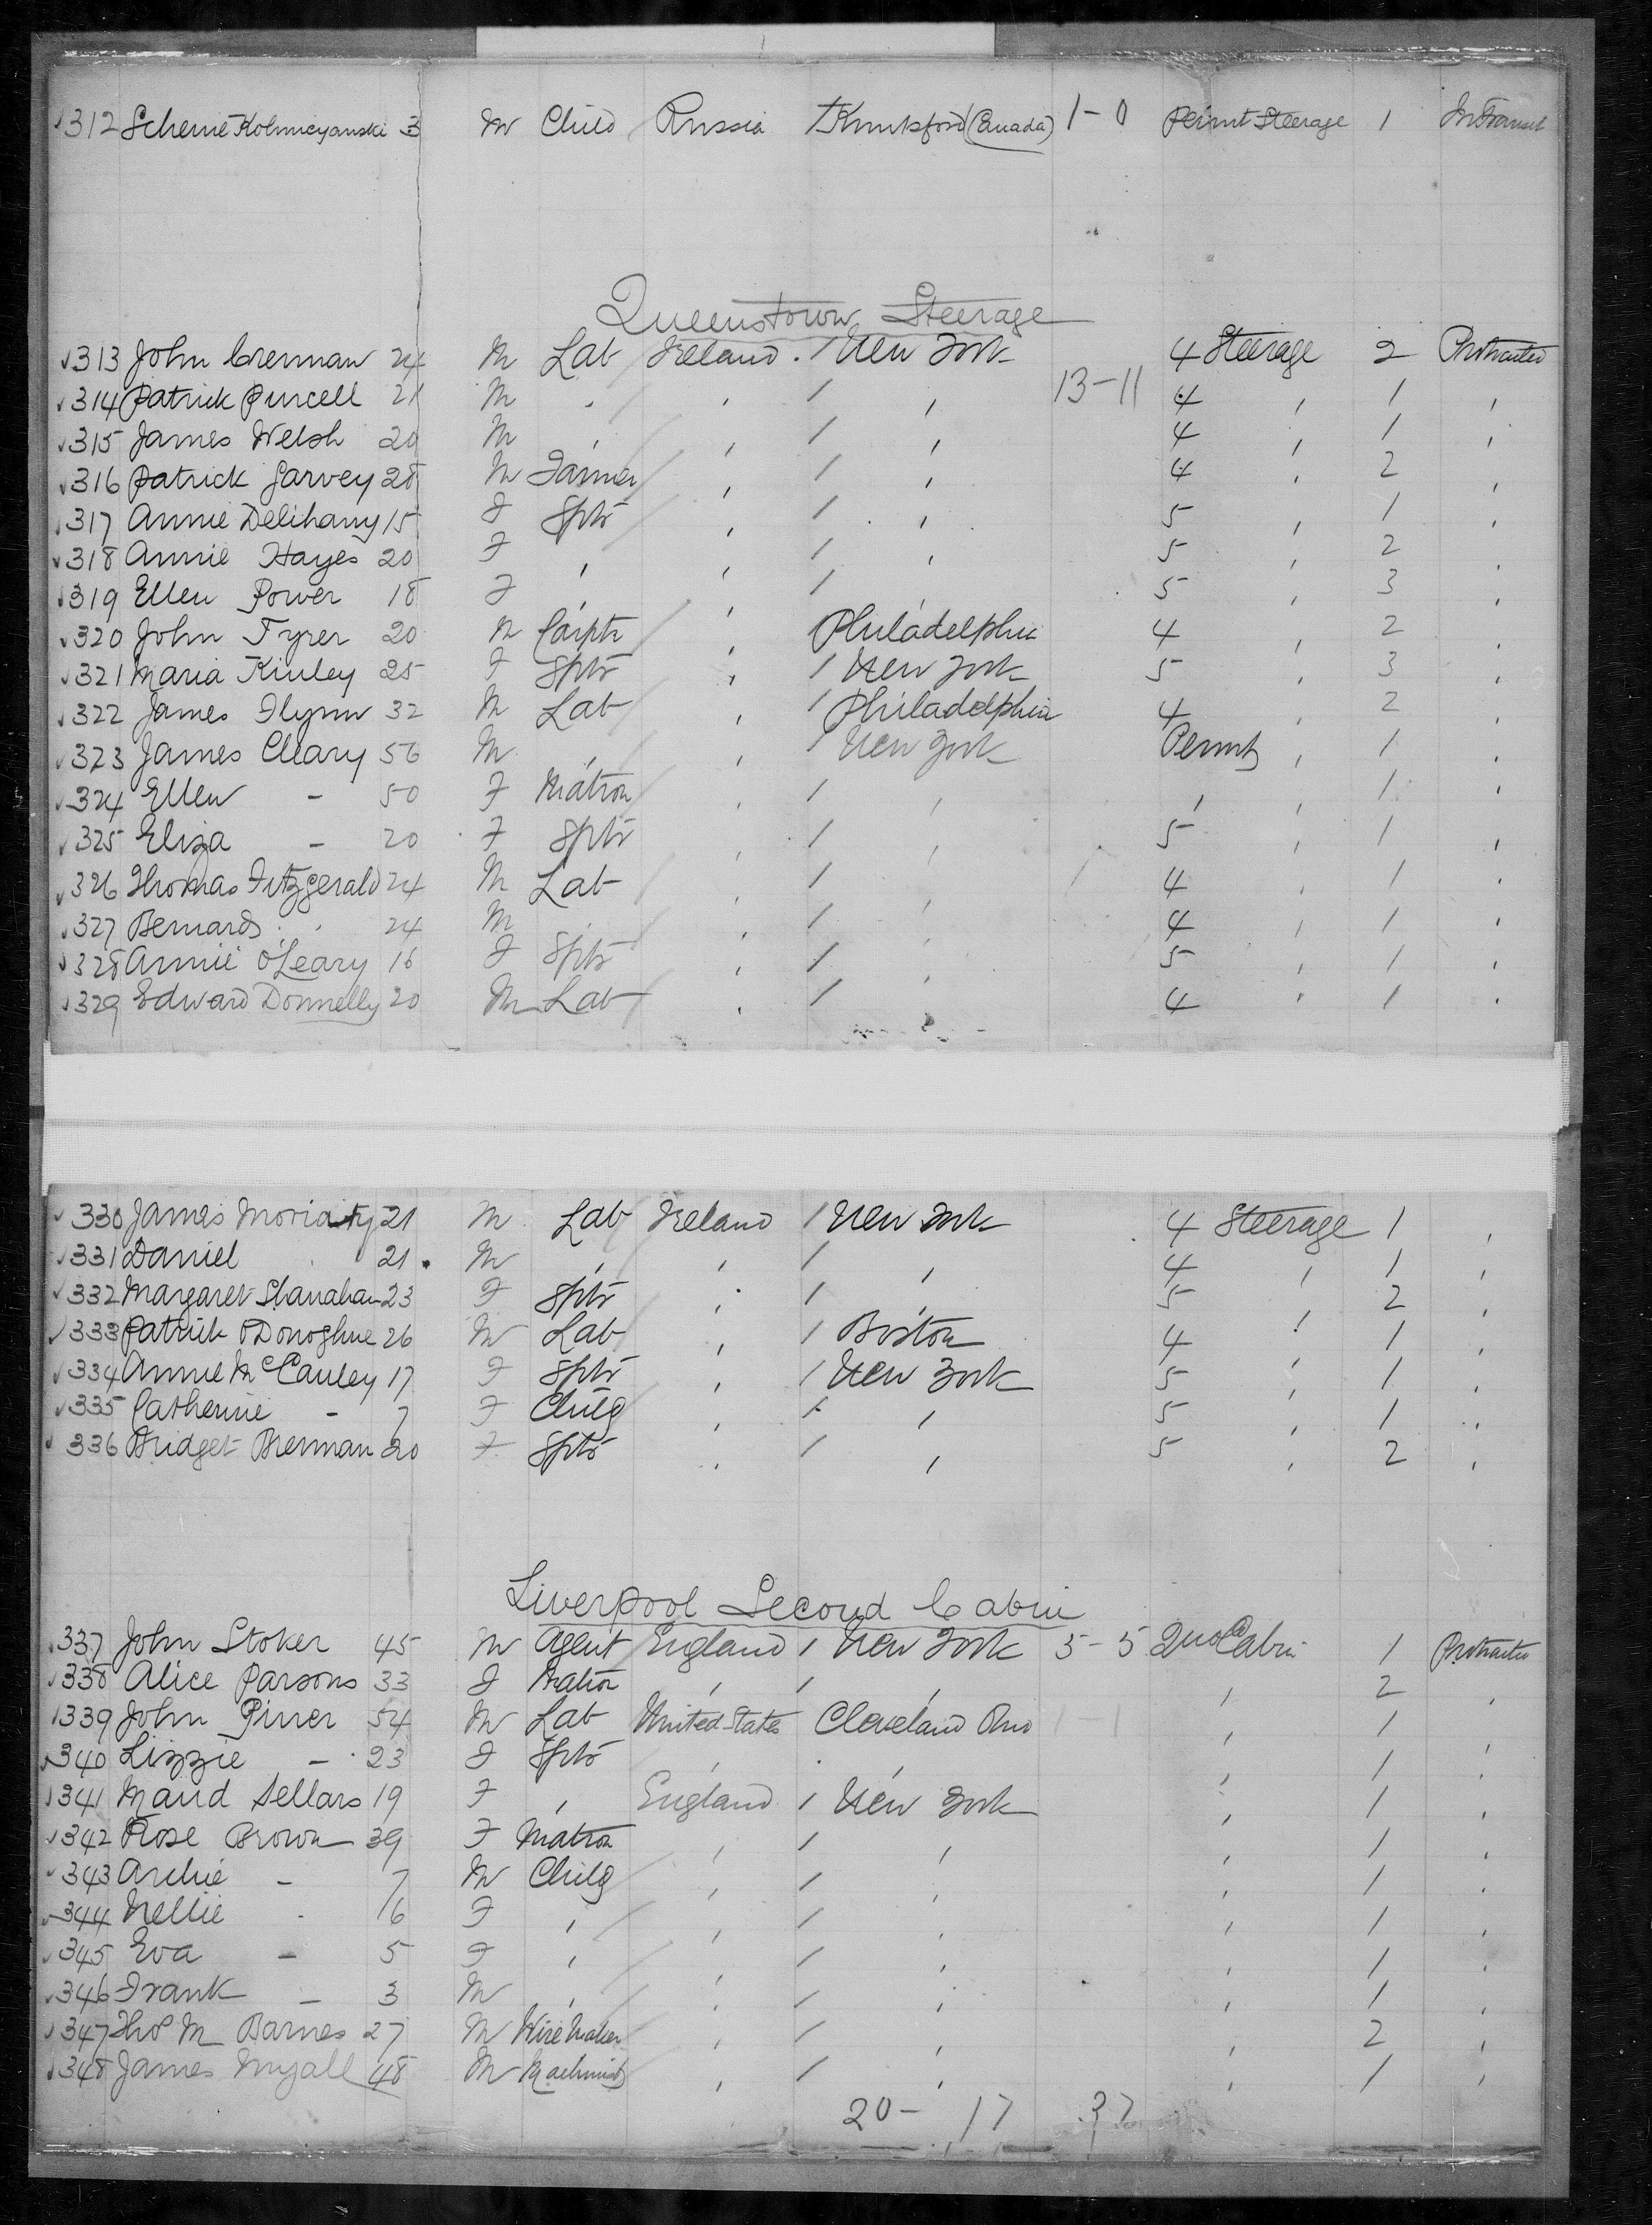 312 Scheme Kolomeyanski 3 M Child Russia (Canada) 1-0 Permt Steerage 1 In Transit
Queenstown Steerage
313 John Crennan 24 M Lab Ireland / New York 4 Steerage 2 Protracted
314 Patrick Purcell 21 M " " / " 13-11 4 " 1 "
315 James Welsh 20 M " " / " 4 " 1 "
316 Patrick Garvey 28 M Farmer " / " 4 " 2 "
317 Annie Delihany 15 F Sptr " / " 5 " 1 "
318 Annie Hayes 20 F " " / " 5 " 2 "
319 Ellen Power 18 F " " / " 5 " 3 "
320 John Tyrer 20 M Carptr " Philadelphia 4 " 2 "
321 Maria Kinley 25 F Sptr " / New York 5 " 3 "
322 James Flynn 32 M Lab " / Philadelphia 4 " 2 "
323 James Cleary 56 M " " / New York Permt " 1 "
324 Ellen - 50 F Matron " / " " " 1 "
325 Eliza - 20 F Sptr " / " 5 " 1 "
326 Thomas Fitzgerald 24 M Lab " / " 4 " 1 "
327 Bernard " 24 M " " / " 4 " 1 "
328 Annie O'Leary 16 F Sptr " / " 5 " 1 "
329 Edward Donnelly 20 M Lab " / 4 " 1 "
330 James Moriarty 21 M Lab Ireland / New York 4 Steerage 1 "
331 Daniel " 21 M " " / " 4 " 1 "
332 Margaret Shanahan 23 F Sptr " / " 5 " 2 "
333 Patrick O'Donoghue 26 M Lab " / Boston 4 " 1 "
334 Annie McCauley 17 F Sptr " / New York 5 " 1 "
335 Catherine - 7 F Child " / " 5 " 1 "
336 Bridget Brennan 20 F Sptr " / " 5 " 2 "
Liverpool Second Cabin
337 John Stoker 45 M Agent England / New York 5-5 2nd Cabin 1 Protracted
338 Alice Parsons 33 F Matron " / " " 2 "
339 John Piner 54 M Lab United States Cleveland Ohio 1-1 " 1 "
340 Lizzie - 23 F Sptr " " " 1 "
341 Maud Sellars 19 F " England / New York " 1 "
342 Rose Brown 39 F Matron " / " " 1 "
343 Archie - 7 M Child " / " " 1 "
344 Nellie - 16 F " " / " " 1 "
345 Eva - 5 F " " / " " 1 "
346 Frank - 3 M " " / " " 1 "
347 Thos M Barnes 27 M Wire Maker " / " " 2 "
348 James Myall 48 M Machinist " / " " 1 "
20- 17 37